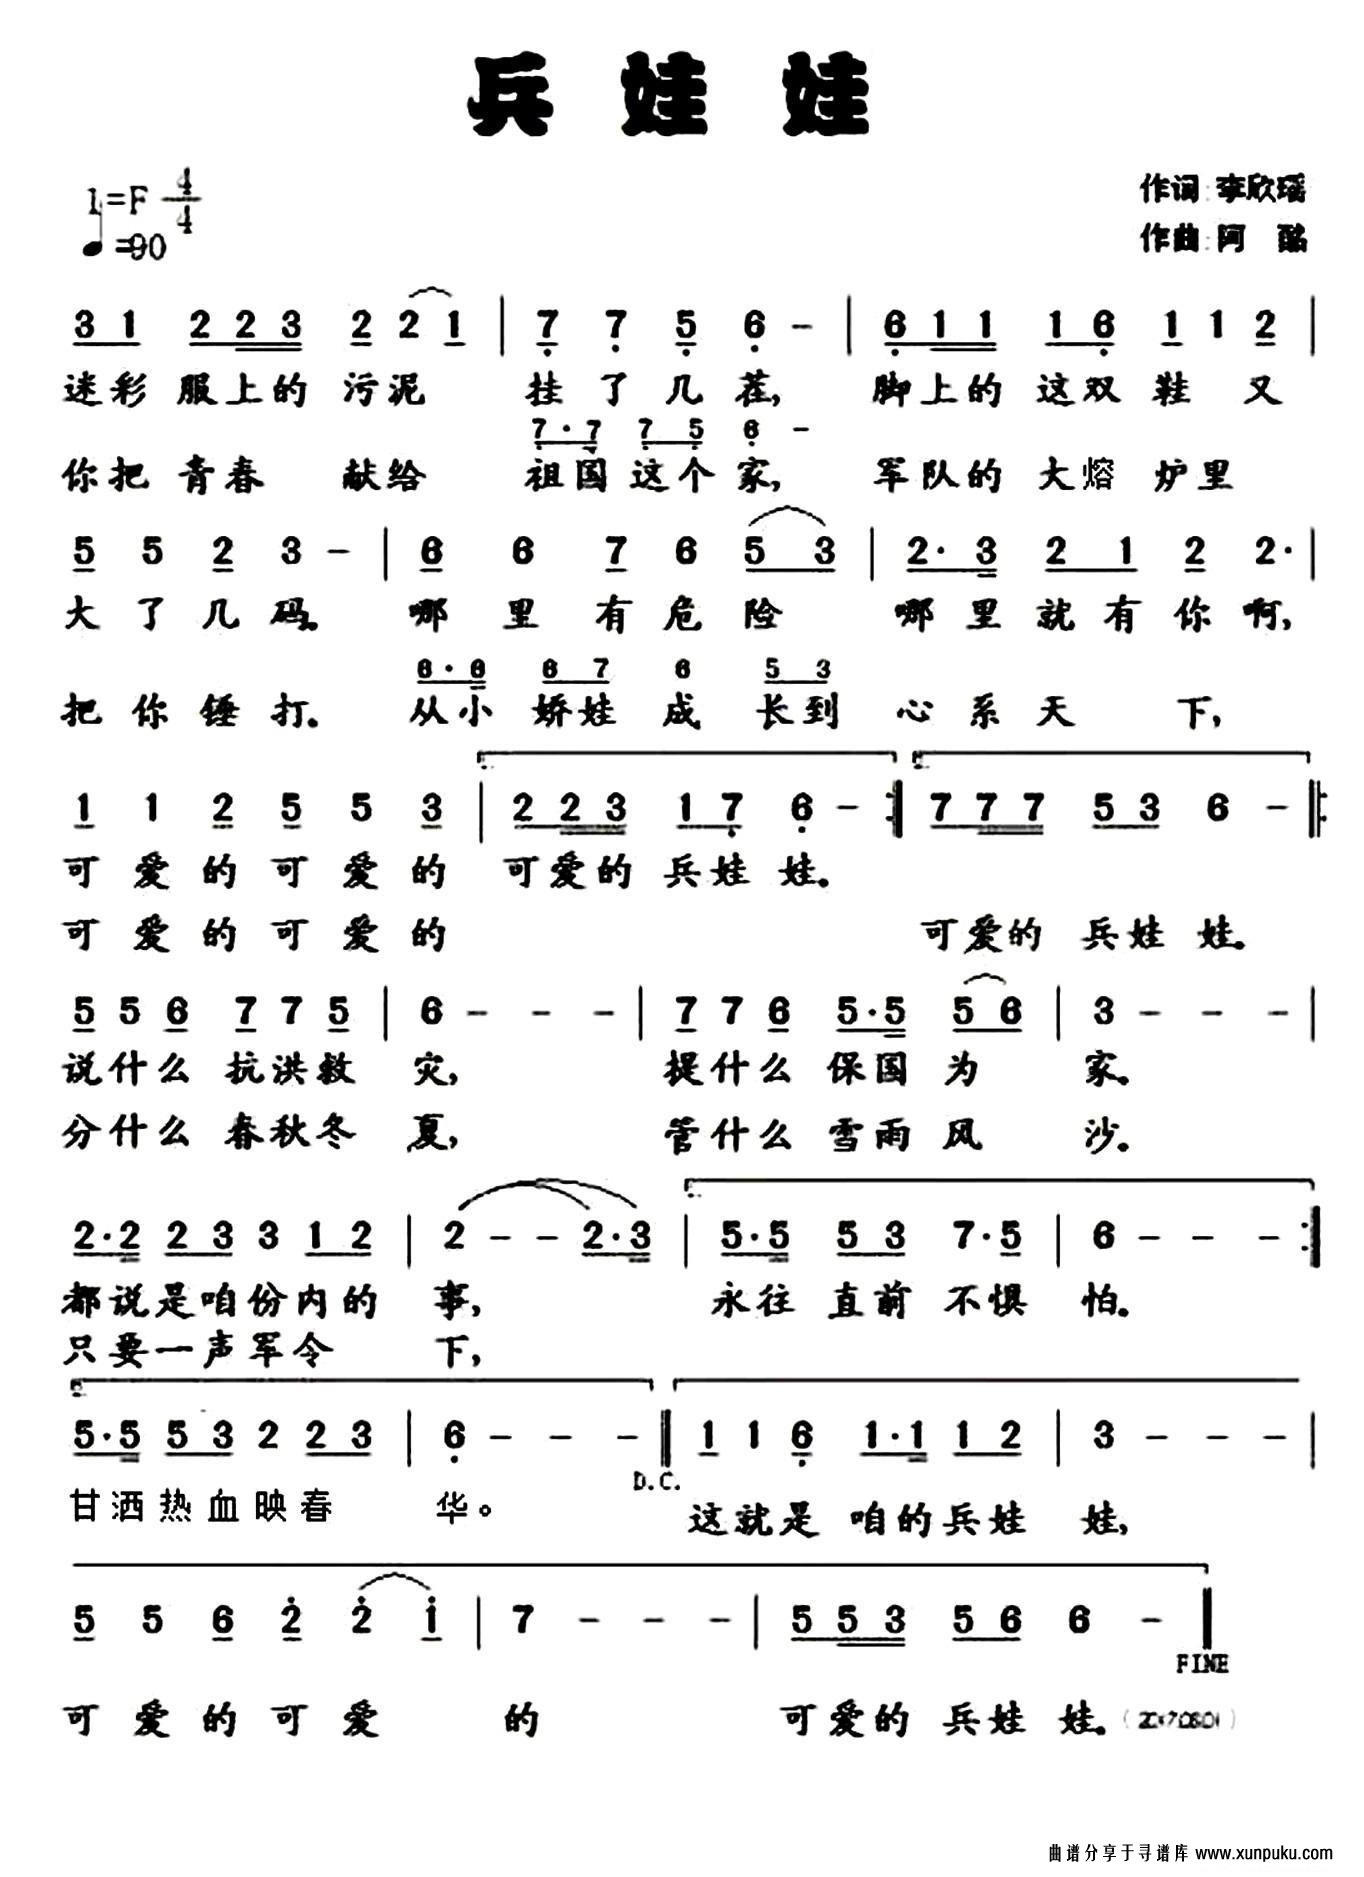 兵娃娃
1=F 4/4
♩=90
作词:李欣瑶
作曲:阿 酩
3 1 2 2 3 2 2 1 | 7 7 5 6 - | 6 1 1 1 6 1 1 2 |
迷彩 服上的 污泥 挂 了 几 茬, 脚上的 这双 鞋 又
7·7 7 5 6 -
你把 青春 献给 祖国 这个 家, 军队的 大熔 炉里
5 5 2 3 - | 6 6 7 6 5 3 | 2·3 2 1 2 2· |
大 了 几 码。 哪 里 有 危 险 哪 里 就 有 你 啊,
6·6 6 7 6 5 3
把 你 锤 打。 从小 娇娃 成 长到 心 系 天 下,
1 1 2 5 5 3 | 2 2 3 1 7 6 - :| 7 7 7 5 3 6 - |:
可 爱 的 可 爱 的 可爱的 兵娃 娃。
可 爱 的 可 爱 的 可爱的 兵娃 娃。
5 5 6 7 7 5 | 6 - - - | 7 7 6 5·5 5 6 | 3 - - - |
说什么 抗洪救 灾, 提什么 保国为 家。
分什么 春秋冬 夏, 管什么 雪雨风 沙。
2·2 2 3 3 1 2 | 2 - - 2·3 | 5·5 5 3 7·5 | 6 - - - :|
都说是咱份内的 事, 永往 直前 不惧 怕。
只要一声军令 下,
5·5 5 3 2 2 3 | 6 - - - || 1 1 6 1·1 1 2 | 3 - - - |
D.C.
甘洒热血映春 华。 这就是 咱的兵娃 娃,
5 5 6 2 2 1 | 7 - - - | 5 5 3 5 6 6 - ||
FINE
可 爱 的 可 爱 的 可爱的 兵娃 娃。
曲谱分享于寻谱库 www.xunpuku.com